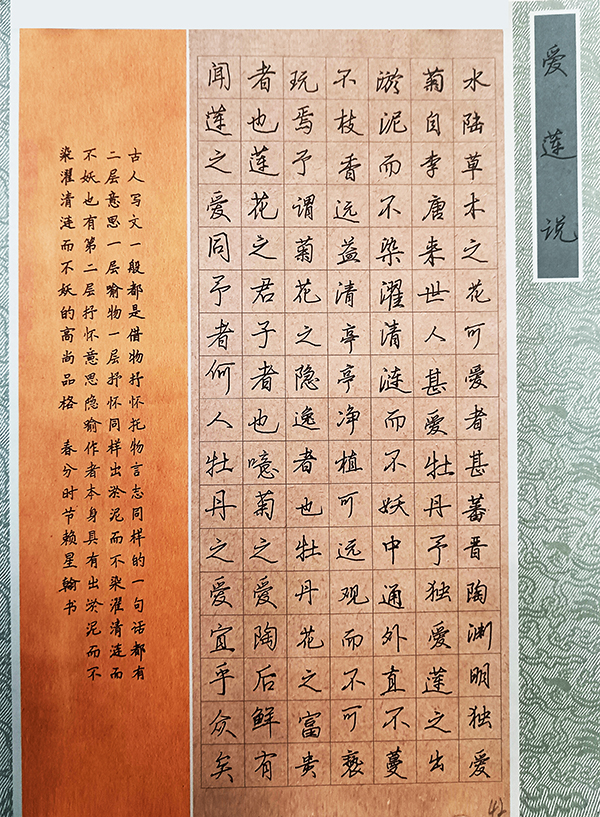 爱莲说
水陆草木之花可爱者甚蕃晋陶渊明独爱
菊自李唐来世人甚爱牡丹予独爱莲之出
淤泥而不染濯清涟而不妖中通外直不蔓
不枝香远益清亭亭净植可远观而不可亵
玩焉予谓菊花之隐逸者也牡丹花之富贵
者也莲花之君子者也噫菊之爱陶后鲜有
闻莲之爱同予者何人牡丹之爱宜乎众矣
古人写文一般都是借物抒怀托物言志同样的一句话都有
二层意思一层喻物一层抒怀同样出淤泥而不染濯清涟而
不妖也有第二层抒怀意思隐喻作者本身具有出淤泥而不
染濯清涟而不妖的高尚品格 春分时节赖星翰书